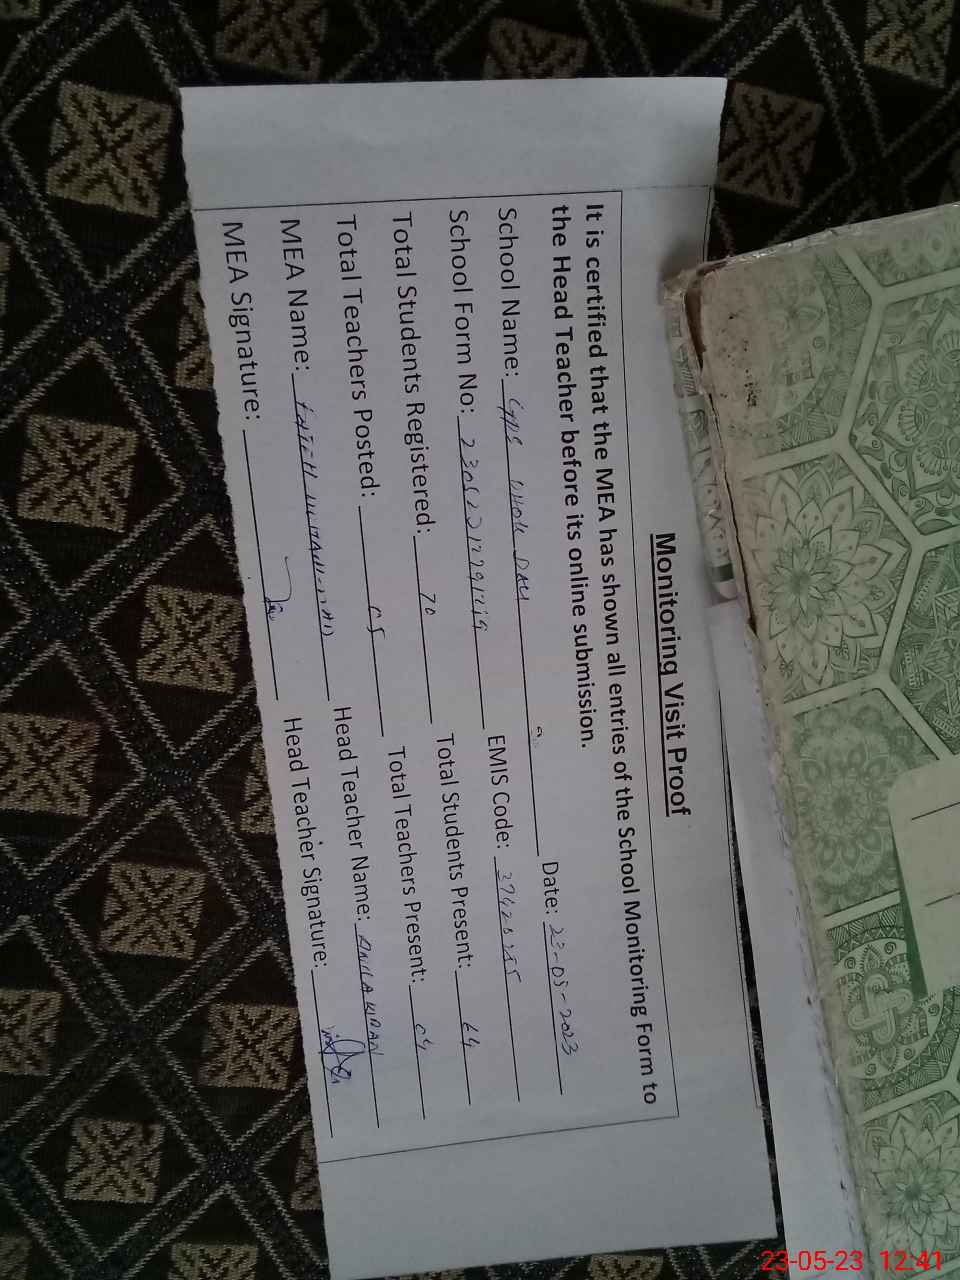 Monitoring Visit Proof
It is certified that the MEA has shown all entries of the School Monitoring Form to
the Head Teacher before its online submission.
School Name: Date: 23-05-2023
School Form No: EMIS Code:
Total Students Registered: 70 Total Students Present: 64
Total Teachers Posted: 05 Total Teachers Present: 04
MEA Name: Head Teacher Name: ANILA KIRAN
MEA Signature: Head Teacher Signature:
23-05-23 12:41